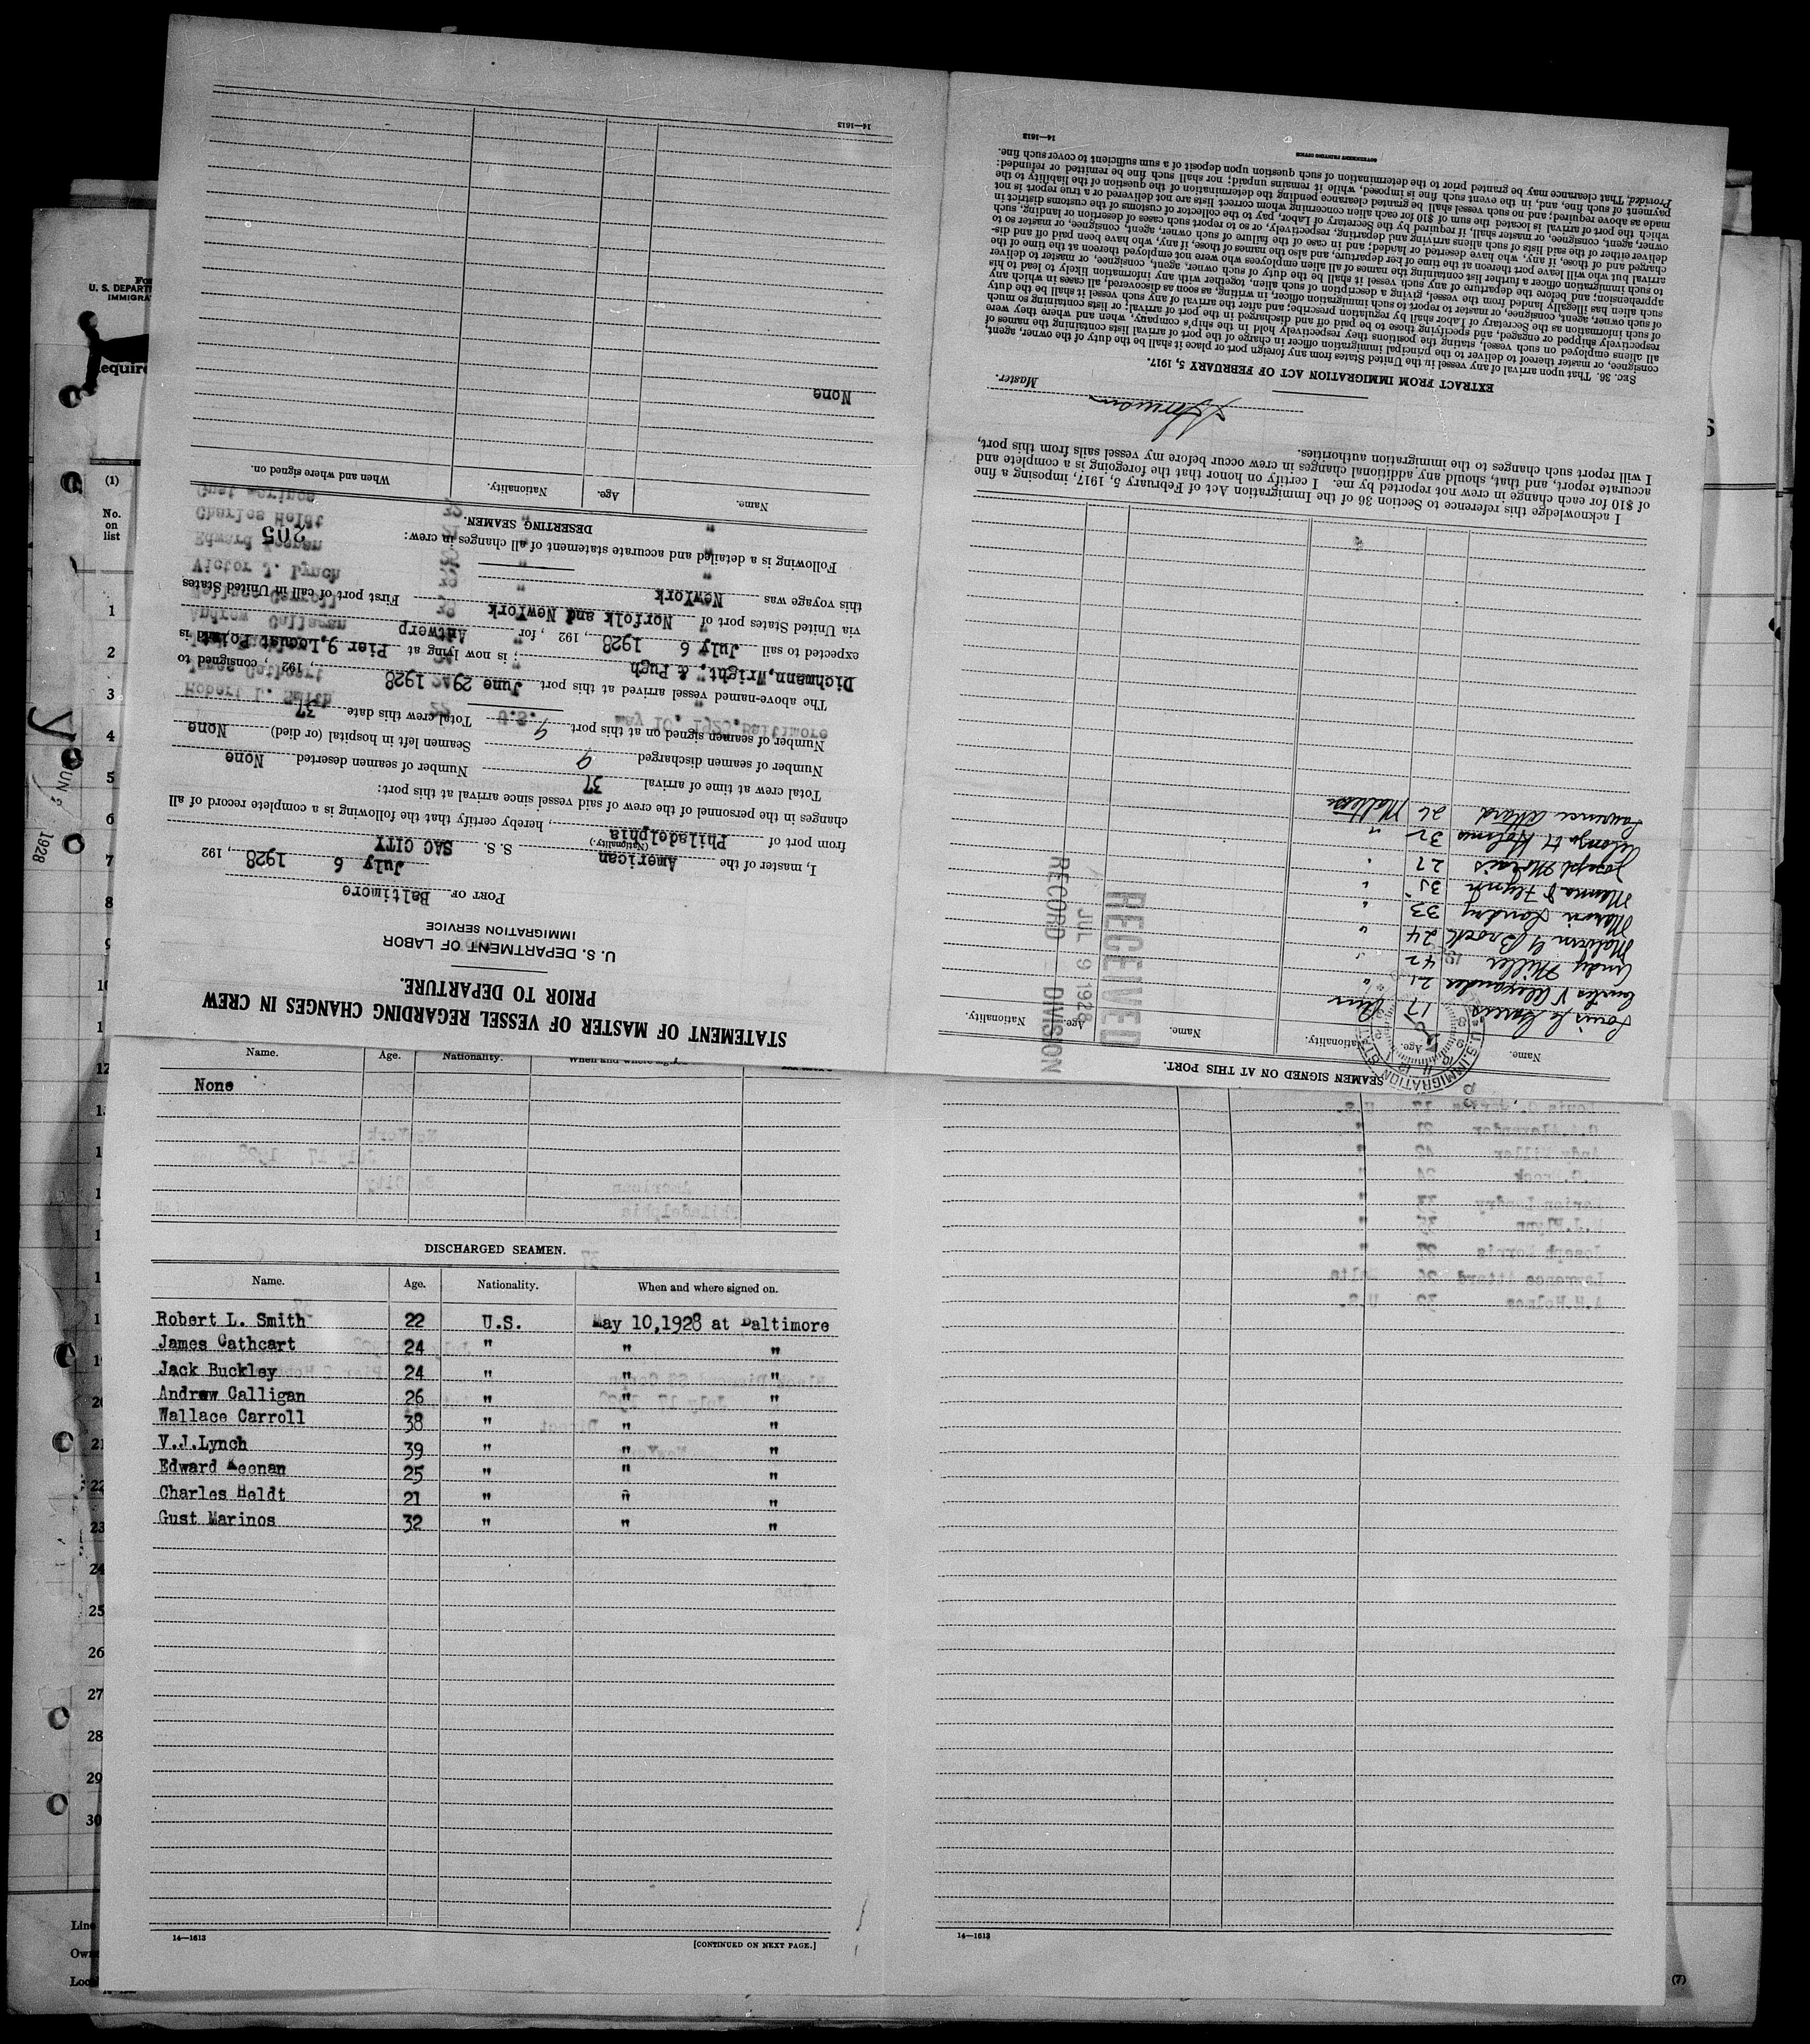 STATEMENT OF MASTER OF VESSEL REGARDING CHANGES IN CREW
PRIOR TO DEPARTURE.
U. S. DEPARTMENT OF LABOR
IMMIGRATION SERVICE
PORT OF Baltimore
July 6 1928, 192
I, master of the American S. S. SAC CITY
(Nationality.)
from port of Philadelphia, hereby certify that the following is a complete record of all
changes in the personnel of the crew of said vessel since arrival at this port:
Total crew at time of arrival 37
Number of seamen discharged 9 Number of seamen deserted None
Number of seamen signed on at this port 9 Seamen left in hospital (or died) None
Total crew this date 37
The above-named vessel arrived at this port June 29 1928, 192 , consigned to
Dichmann, Wright, & Pugh; is now lying at Pier 9, Locust Point and is
expected to sail July 6 1928, 192 , for Antwerp
via United States port of Norfolk and NewYork First port of call in United States
this voyage was NewYork
Following is a detailed and accurate statement of all changes in crew:
205
DESERTING SEAMEN.
Name. Age. Nationality. When and where signed on.
None
14—1613
SEAMEN SIGNED ON AT THIS PORT.
Name. Age. Nationality. Name. Age. Nationality.
17
Curtis V Alexander 21 "
Andy Miller 42 "
Malvin G Brock 24 "
Marion Landry 33 "
Flynn 35 "
Joseph Morris 27 "
Alonzo H Holmes 32 "
Lawrence Attard 26 Maltese
RECEIVED
JUL 9 1928
RECORD DIVISION
U.S. IMMIGRATION
I acknowledge this reference to Section 36 of the Immigration Act of February 5, 1917, imposing a fine
of $10 for each change in crew not reported by me. I certify on honor that the foregoing is a complete and
accurate report, and that, should any additional changes in crew occur before my vessel sails from this port,
I will report such changes to the immigration authorities.
Master.
EXTRACT FROM IMMIGRATION ACT OF FEBRUARY 5, 1917.
SEC. 36. That upon arrival of any vessel in the United States from any foreign port or place it shall be the duty of the owner, agent,
consignee, or master thereof to deliver to the principal immigration officer in charge of the port of arrival lists containing the names of
all aliens employed on such vessel, stating the positions they respectively hold in the ship's company, when and where they were
respectively shipped or engaged, and specifying those to be paid off and discharged in the port of arrival; or lists containing so much
of such information as the Secretary of Labor shall by regulation prescribe; and after the arrival of any such vessel it shall be the duty
of such owner, agent, consignee, or master to report to such immigration officer, in writing, as soon as discovered, all cases in which any
such alien has illegally landed from the vessel, giving a description of such alien, together with any information likely to lead to his
apprehension; and before the departure of any such vessel it shall be the duty of such owner, agent, consignee, or master to deliver
to such immigration officer a further list containing the names of all alien employees who were not employed thereon at the time of the
arrival but who will leave port thereon at the time of her departure, and also the names of those, if any, who have been paid off and dis-
charged and of those, if any, who have deserted or landed; and in case of the failure of such owner, agent, consignee, or master so to
deliver either of the said lists of such aliens arriving and departing, respectively, or so to report such cases of desertion or landing, such
owner, agent, consignee, or master shall, if required by the Secretary of Labor, pay to the collector of customs of the customs district in
which the port of arrival is located the sum of $10 for each alien concerning whom correct lists are not delivered or a true report is not
made as above required; and no such vessel shall be granted clearance pending the determination of the question of the liability to the
payment of such fine, and, in the event such fine is imposed, while it remains unpaid; nor shall such fine be remitted or refunded:
Provided, That clearance may be granted prior to the determination of such question upon deposit of a sum sufficient to cover such fine.
GOVERNMENT PRINTING OFFICE
14—1613
Name. Age. Nationality.
None
DISCHARGED SEAMEN.
Name. Age. Nationality. When and where signed on.
Robert L. Smith 22 U.S. May 10,1928 at Baltimore
James Cathcart 24 " " "
Jack Buckley 24 " " "
Andrew Calligan 26 " " "
Wallace Carroll 38 " " "
V.J.Lynch 39 " " "
Edward Keenan 25 " " "
Charles Heldt 21 " " "
Gust Marinos 32 " " "
14—1613
[CONTINUED ON NEXT PAGE.]
14—1613
U. S. DEPART
IMMIGRA
equire
(1)
No.
on
list
1
2
3
4
5
6
7
8
9
10
1
12
20
21
22
23
24
25
26
27
28
29
30
Line
Own
Loc
(7)
1928